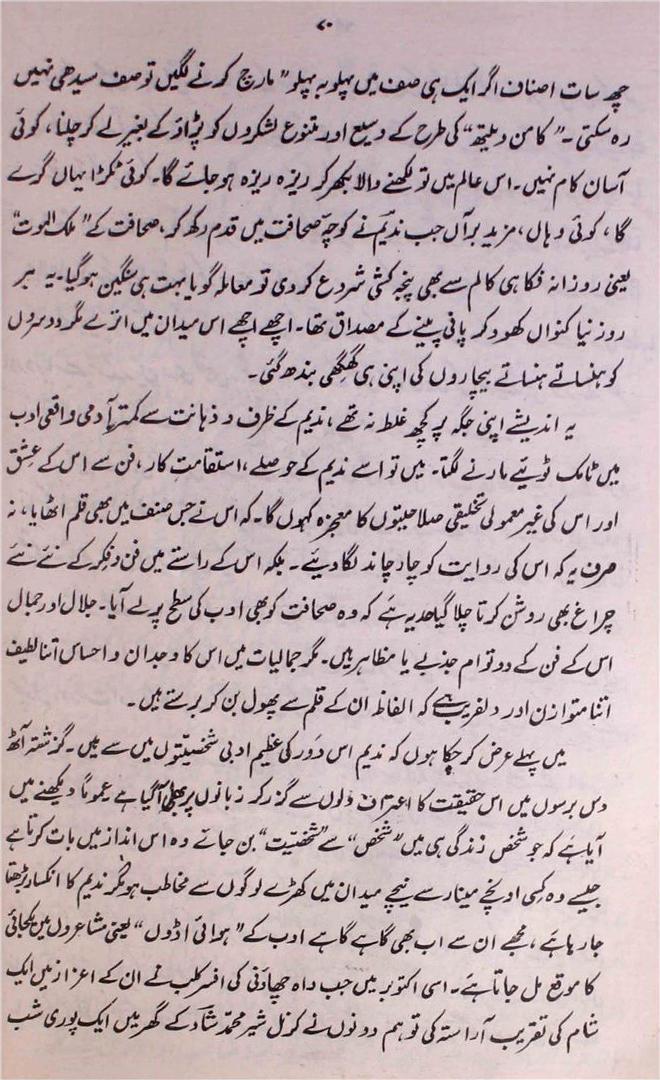 ۷۰
چھ سات اصناف اگر ایک ہی صف میں پہلو بہ پہلو ”مارچ کرنے لگیں تو صف سیدھی نہیں
رہ سکتی۔ ”کامن ویلتھ“ کی طرح کے وسیع اور متنوع لشکروں کو پڑاؤ کے بغیر لے کر چلنا، کوئی
آسان کام نہیں۔ اس عالم میں تو لکھنے والا بکھر کر ریزہ ریزہ ہو جائے گا۔ کوئی ٹکڑا یہاں گرے
گا، کوئی وہاں، مزید برآں جب ندیمؔ نے کوچۂ صحافت میں قدم رکھ کر، صحافت کے ”ملک الموت“
یعنی روزانہ فکاہی کالم سے بھی پنجہ کشی شروع کر دی تو معاملہ گویا بہت ہی سنگین ہو گیا۔ یہ ہر
روز نیا کنواں کھود کر پانی پینے کے مصداق تھا۔ اچھے اچھے اس میدان میں اترے مگر دوسروں
کو ہنساتے ہنساتے بیچاروں کی اپنی ہی گھگھی بندھ گئی۔
یہ اندیشے اپنی جگہ پر کچھ غلط نہ تھے، ندیم کے ظرف و ذہانت سے کمتر آدمی واقعی ادب
میں ٹامک ٹوئیے مارنے لگتا۔ میں تو اسے ندیم کے حوصلے، استقامت کار، فن سے اس کے عشق
اور اس کی غیر معمولی تخلیقی صلاحیتوں کا معجزہ کہوں گا۔ کہ اس نے جس صنف میں بھی قلم اٹھایا، نہ
صرف یہ کہ اس کی روایت کو چار چاند لگا دیئے۔ بلکہ اس کے راستے میں فن و فکر کے نئے نئے
چراغ بھی روشن کرتا چلا گیا حد یہ ہے کہ وہ صحافت کو بھی ادب کی سطح پر لے آیا۔ جلال اور جمال
اس کے فن کے دو توام جذبے یا مظاہر ہیں۔ مگر جمالیات میں اس کا وجدان و احساس اتنا لطیف
اتنا متوازن اور دلفریب ہے کہ الفاظ ان کے قلم سے پھول بن کر برستے ہیں۔
میں پہلے عرض کر چکا ہوں کہ ندیم اس دَور کی عظیم ادبی شخصیتوں میں سے ہیں۔ گزشتہ آٹھ
دس برسوں میں اس حقیقت کا اعتراف دلوں سے گزر کر زبانوں پر بھی آ گیا ہے عموماً دیکھنے میں
آیا ہے کہ جو شخص زندگی ہی میں ”شخص“ سے ”شخصیّت“ بن جائے وہ اس انداز میں بات کرتا ہے
جیسے وہ کسی اونچے مینار سے نیچے میدان میں کھڑے لوگوں سے مخاطب ہو مگر ندیم کا انکسار بڑھتا
جا رہا ہے، مجھے ان سے اب بھی گاہے گاہے ادب کے ”ہوائی اڈوں“ یعنی مشاعروں میں یکجائی
کا موقع مل جاتا ہے۔ اسی اکتوبر میں جب واہ چھاؤنی کی افسر کلب نے ان کے اعزاز میں ایک
شام کی تقریب آراستہ کی تو ہم دونوں نے کرنل شیر محمّد شاؔد کے گھر میں ایک پوری شب